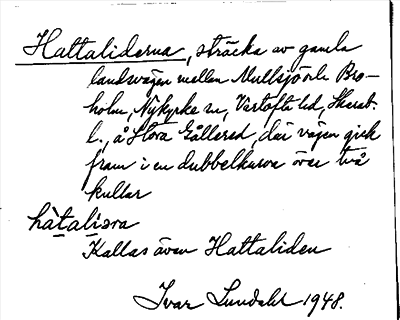 Hattaliderna, sträcka av gamla
landsvägen mellan Mullsjö och Bro-
holm, Nykyrka sn, Vartofta hd, Skarab.
l., å Stora Gållered, där vägen gick
fram i en dubbelkurva över två
kullar
hàtaliɔra
Kallas även Hattaliden
Ivar Lundahl 1948.